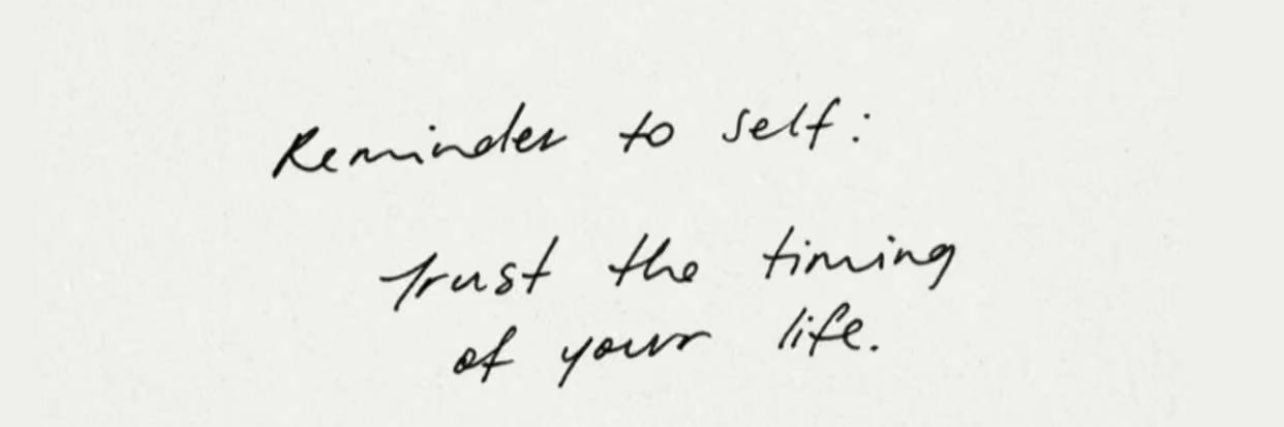 Reminder to self:
trust the timing
of your life.